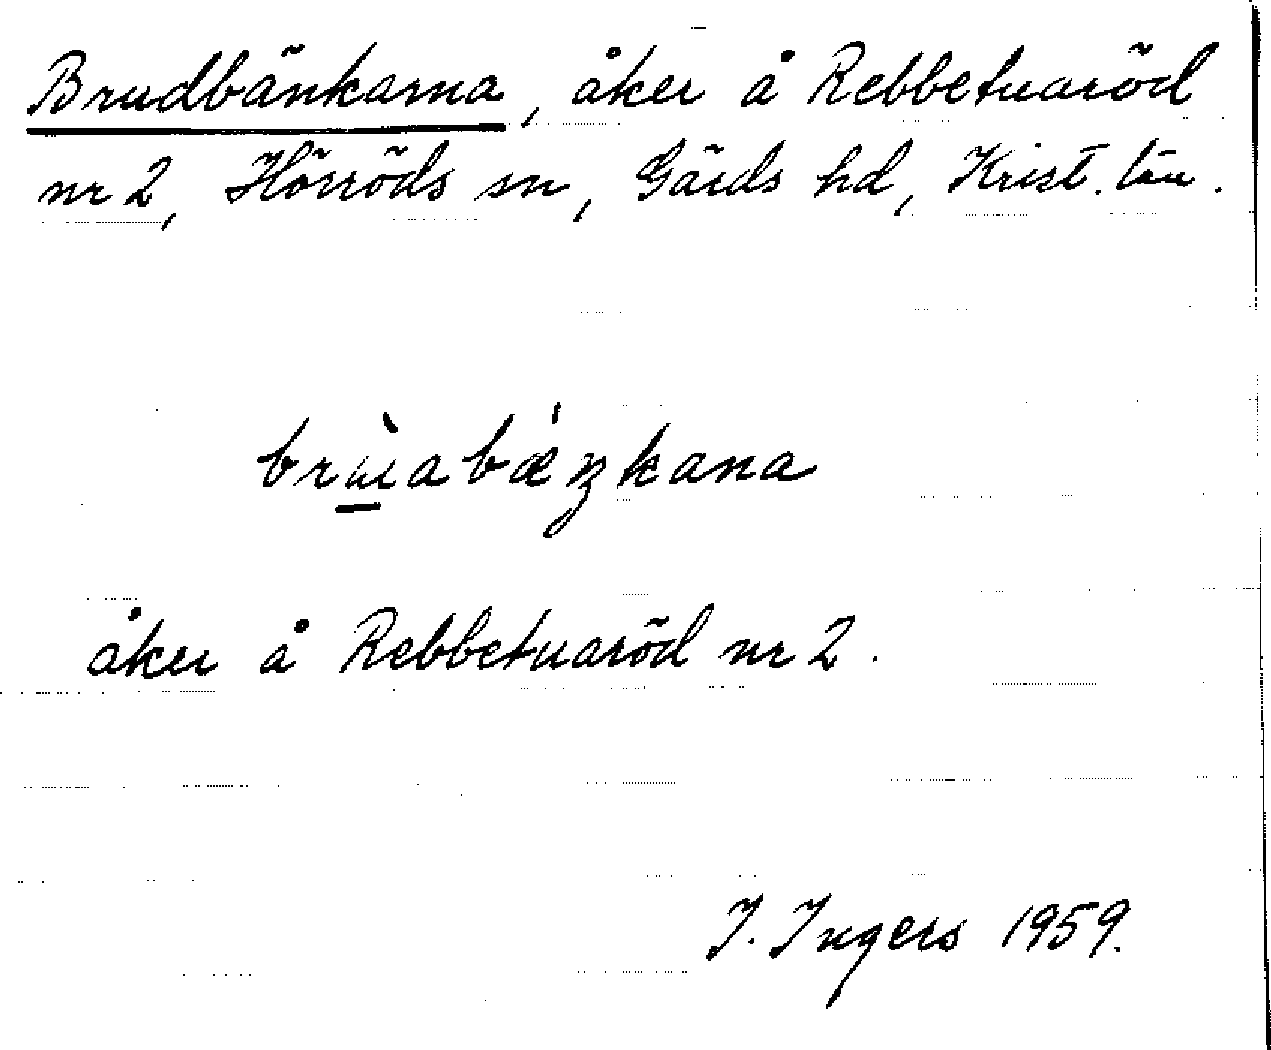 Brudbänkarna, åker å Rebbetuaröd
nr 2, Hörröds sn, Gärds hd, Krist. län.
brùabǽŋkana
åker å Rebbetuaröd nr 2.
I. Ingers 1959.